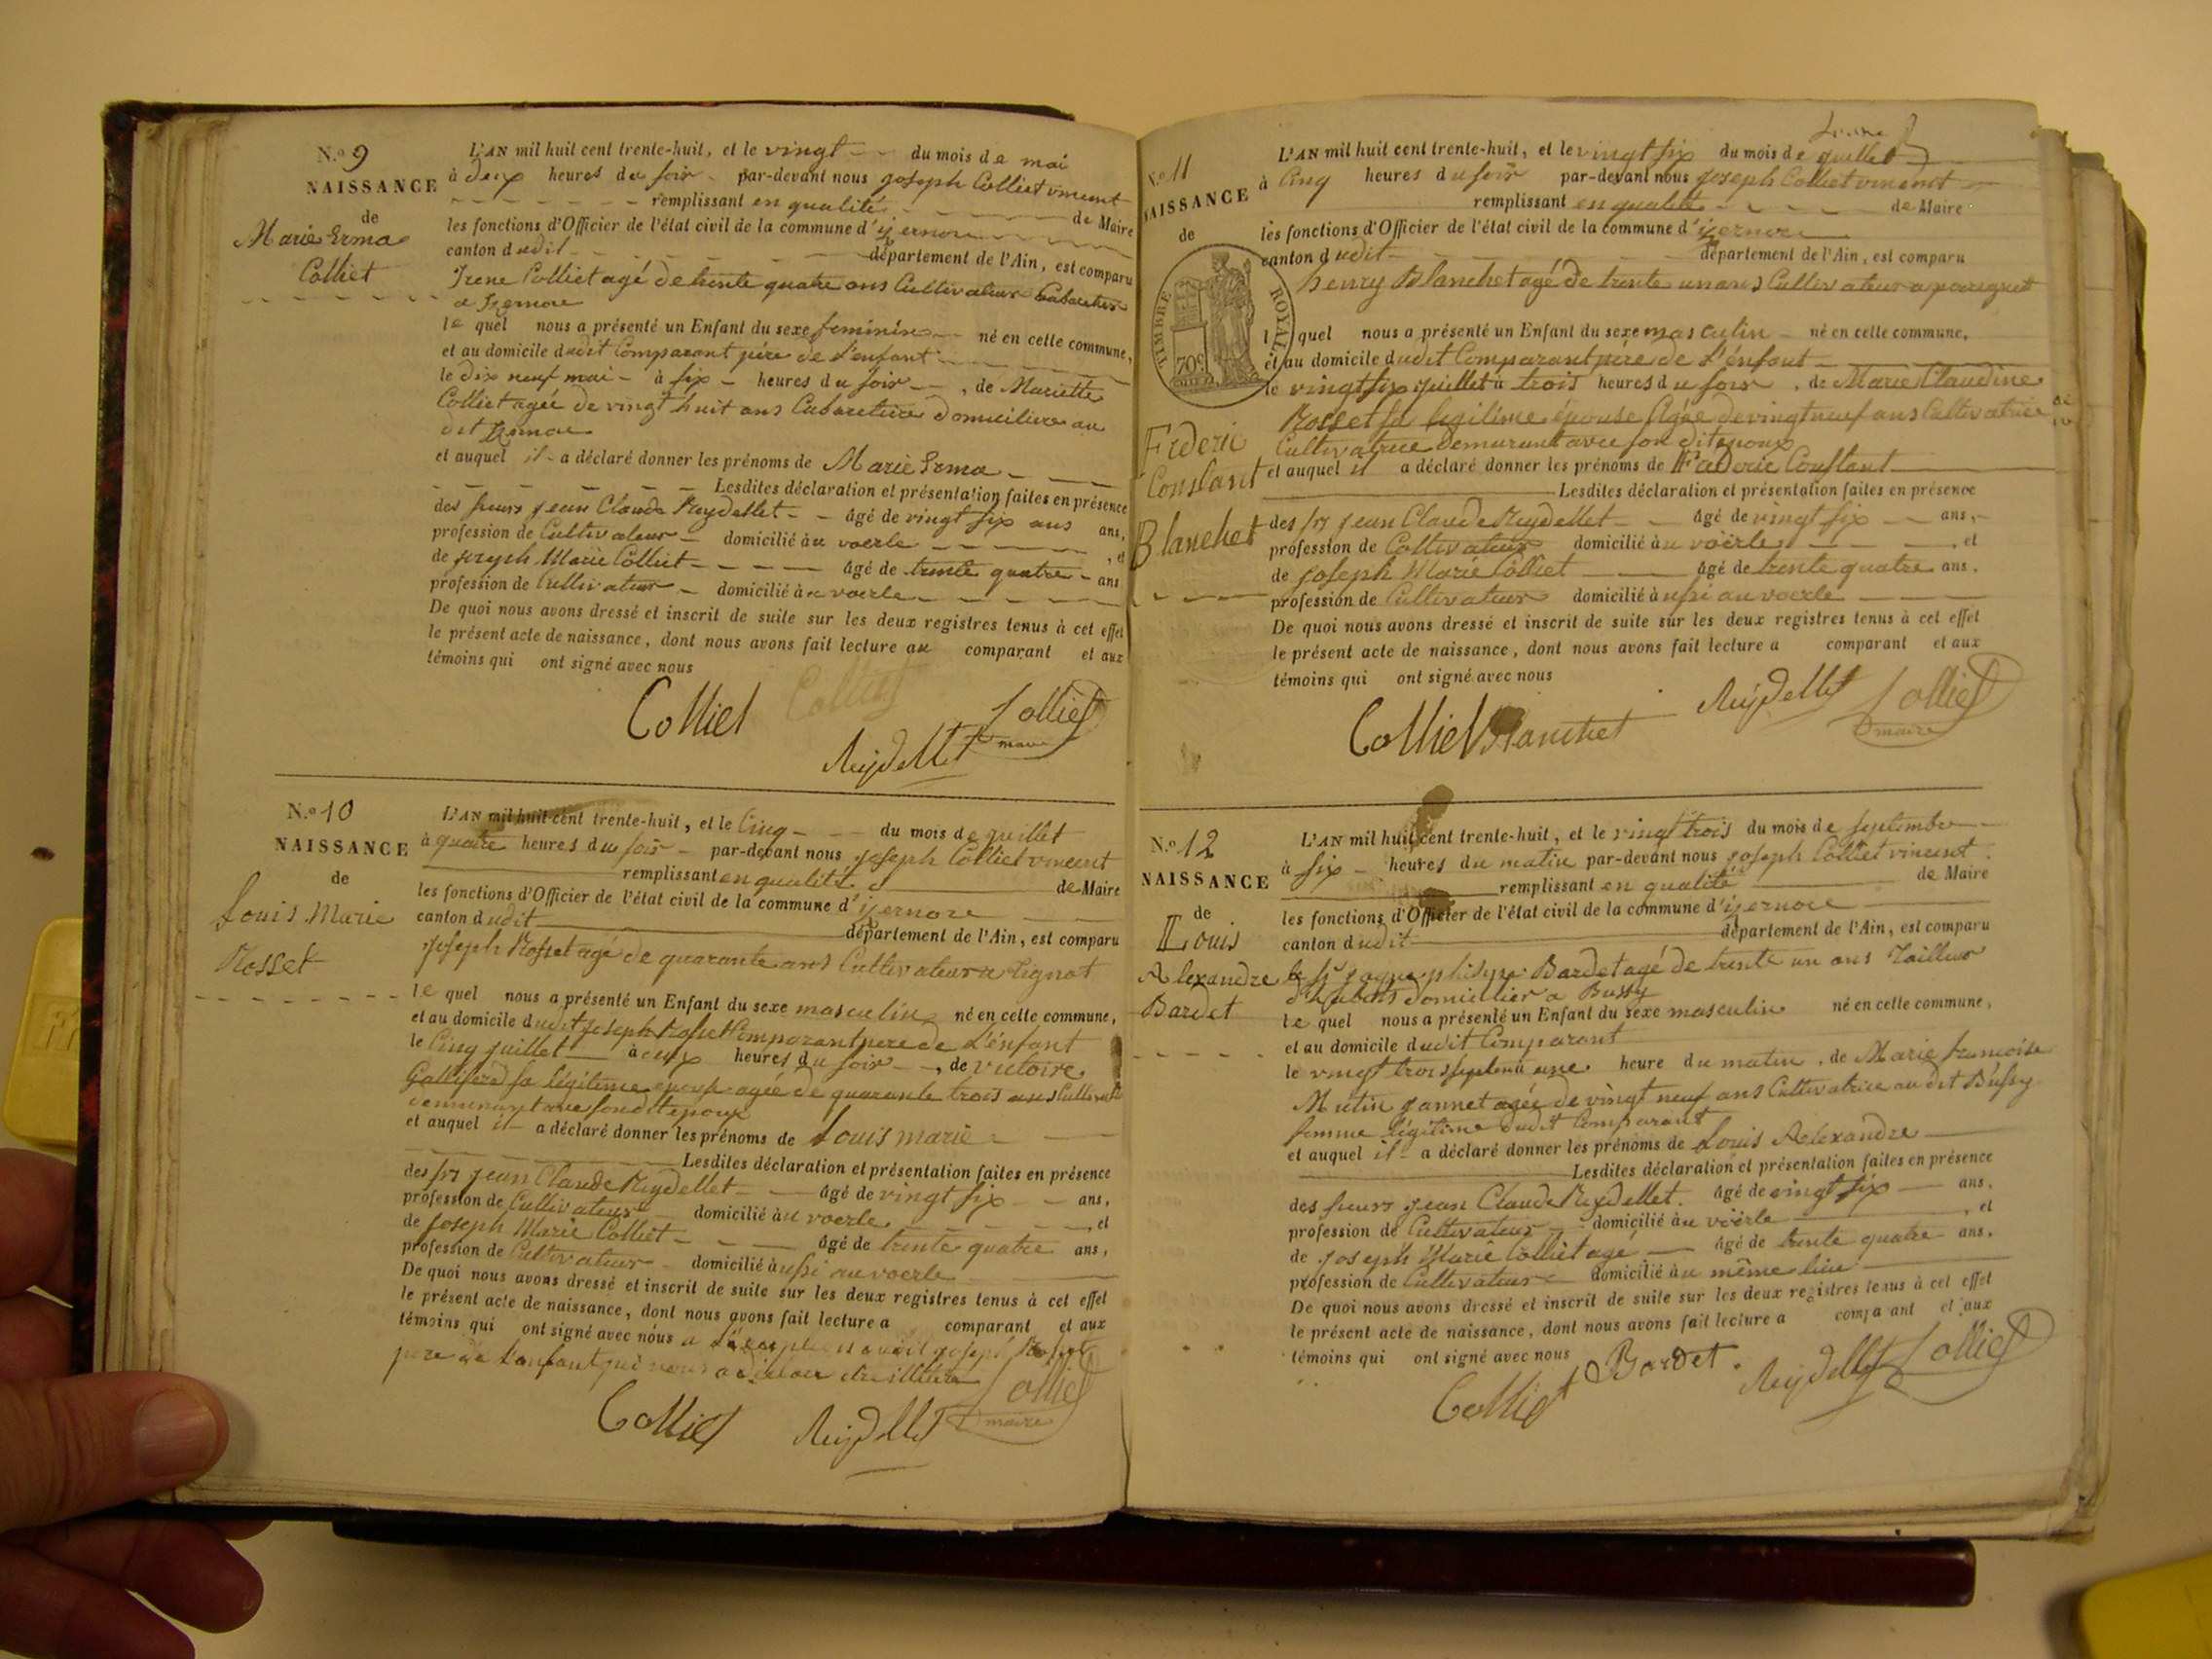 N.o 9
NAISSANCE
de
Marie Erma
Colliet
L'AN mil huit cent trente-huit, et le vingt du mois de mai
à deux heures du soir par-devant nous joseph Colliet vincent
remplissant en qualité de Maire
les fonctions d'Officier de l'état civil de la commune d'izernore
canton dudit département de l'Ain, est comparu
Irene Colliet agé de trente quatre ans Cultivateur Cabaretier
a Izernore
le quel nous a présenté un Enfant du sexe feminin né en cette commune,
et au domicile dudit Comparant père de l'enfant
le dix neuf mai à six heures du soir, de Mariette
Colliet agée de vingt huit ans Cabaretiere domiciliere au
dit Izernore
et auquel il a déclaré donner les prénoms de Marie Erma
Lesdites déclaration et présentation faites en présence
des sieurs jean Claude Reydellet âgé de vingt six ans ans,
profession de Cultivateur domicilié àu voerle, et
de joseph Marie Colliet âgé de trente quatre ans
profession de Cultivateur domicilié àu voerle
De quoi nous avons dressé et inscrit de suite sur les deux registres tenus à cet effet
le présent acte de naissance, dont nous avons fait lecture au comparant et aux
témoins qui ont signé avec nous
Colliet Colliet Colliet
Reydellet maire
N.o 10
NAISSANCE
de
Louis Marie
Rosset
L'AN mil huit cent trente-huit, et le Cinq du mois de juillet
à quatre heures du soir par-devant nous joseph Colliet vincent
remplissant en qualité de Maire
les fonctions d'Officier de l'état civil de la commune d'izernore
canton dudit département de l'Ain, est comparu
joseph Rosset agé de quarante ans Cultivateur a tignat
le quel nous a présenté un Enfant du sexe masculin né en cette commune,
et au domicile dudit joseph Rosset Comparant pere de l'enfant
le Cinq juillet à heures du soir, de victoire
sa légitime epouse agée de quarante trois ans
demeurant avec son dit epoux
et auquel il a déclaré donner les prénoms de Louis marie
Lesdites déclaration et présentation faites en présence
des srs jean Claude Reydellet âgé de vingt six ans,
profession de Cultivateur domicilié àu voerle, et
de joseph Marie Colliet âgé de trente quatre ans,
profession de Cultivateur domicilié àussi au voerle
De quoi nous avons dressé et inscrit de suite sur les deux registres tenus à cet effet
le présent acte de naissance, dont nous avons fait lecture a comparant et aux
témoins qui ont signé avec nous a joseph Rosset
pere de l'enfant qui nous a
Colliet Reydellet Colliet
maire
N.o 11
NAISSANCE
de
TIMBRE ROYAL
70c
Frideric
Constant
Blanchet
L'AN mil huit cent trente-huit, et le vingt six du mois de juillet
à Cinq heures du soir par-devant nous joseph Colliet vincent
remplissant en qualité de Maire
les fonctions d'Officier de l'état civil de la commune d'izernore
canton dudit département de l'Ain, est comparu
henry Blanchet agé de trente un ans Cultivateur a perignat
l quel nous a présenté un Enfant du sexe masculin né en cette commune,
et au domicile dudit Comparant père de l'énfant
le vingt six juillet à trois heures du soir, de Marie Claudine
Rosset sa legitime épouse Agée de vingt neuf ans Cultivatrice
Cultivatrice demurant avec son dit epoux
et auquel il a déclaré donner les prénoms de Frideric Constant
Lesdites déclaration et présentation faites en présence
des srs jean Claude Reydellet âgé de vingt six ans,
profession de Coltivateur domicilié àu voërle, et
de joseph Marie Colliet âgé de trente quatre ans.
profession de Cultivateur domicilié àussi au voerle
De quoi nous avons dressé et inscrit de suite sur les deux registres tenus à cet effet
le présent acte de naissance, dont nous avons fait lecture a comparant et aux
témoins qui ont signé avec nous
Colliet Blanchet Reydellet Colliet
maire
N.o 12
NAISSANCE
de
Louis
Alexandre
Bardet
L'AN mil huit cent trente-huit, et le vingt trois du mois de septembre
à six heures du matin par-devant nous joseph Colliet vincent
remplissant en qualité de Maire
les fonctions d'Officier de l'état civil de la commune d'izernore
canton dudit département de l'Ain, est comparu
le sr Bardet agé de trente un ans Tailleur
d'habits domicilier a Bussy
le quel nous a présenté un Enfant du sexe masculin né en cette commune,
et au domicile dudit Comparant
le vingt trois septem à une heure du matin, de Marie francoise
Mutin jannet agée de vingt neuf ans Cultivatrice au dit Bussy
femme légitime dudit Comparant
et auquel il a déclaré donner les prénoms de Louis Alexandre
Lesdites déclaration et présentation faites en présence
des sieurs jean Claude Reydellet. âgé de vingt six ans,
profession de Cultivateur domicilié àu voërle, et
de joseph Marie Colliet agé âgé de trente quatre ans.
profession de Cultivateur domicilié àu même lieu
De quoi nous avons dressé et inscrit de suite sur les deux registres tenus à cet effet
le présent acte de naissance, dont nous avons fait lecture a compa ant et aux
témoins qui ont signé avec nous
Colliet Bardet. Reydellet Colliet